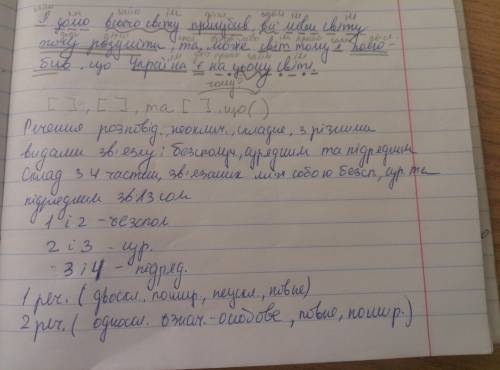 Я домо всього світу прилубив, всі мови світу
можу розуміти, та, може світ тому я полю-
бив, що Україна є на цьому світі.
чому?
[ ], [ ], та [ ], що ( )
Речення розповід., неоклич., складне, з різними
видами зв'язку: безсполуч, сурядним та підрядним
Склад з 4 частин, зв'язаних між собою безсп, сур та
підрядним зв'язком
1 і 2 - безспол
2 і 3 - сур.
3 і 4 - підряд.
1 реч. (двоскл., пошир., неускл., повне)
2 реч. (односкл. означ.-особове, повне, пошир.)